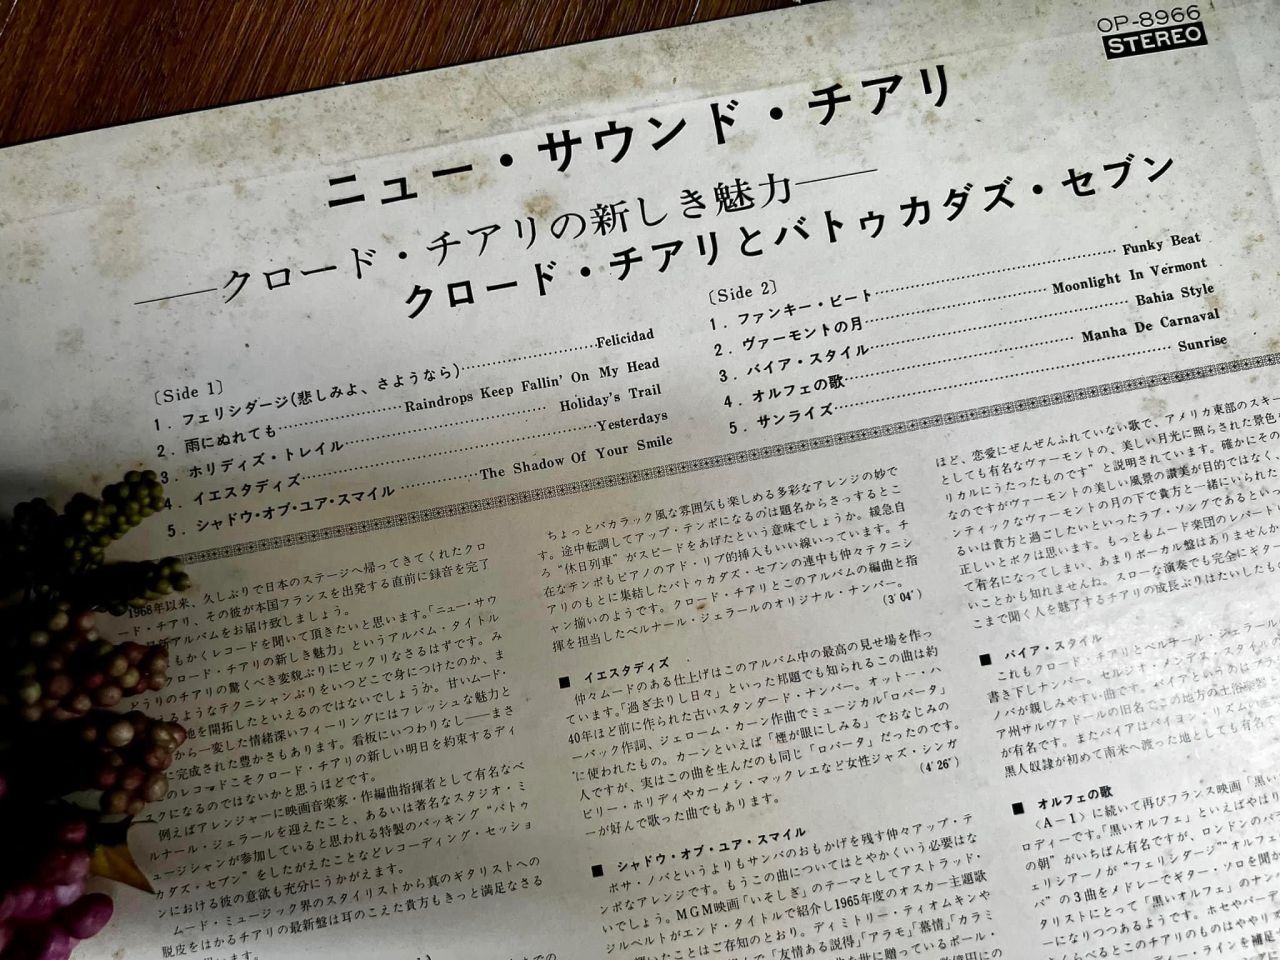 OP-8966
STEREO
ニュー・サウンド・チアリ
——クロード・チアリの新しき魅力——
クロード・チアリとバトゥカダズ・セブン
〔Side 1〕
1. フェリシダージ(悲しみよ、さようなら)……Felicidad
2. 雨にぬれても……Raindrops Keep Fallin' On My Head
3. ホリディズ・トレイル……Holiday's Trail
4. イエスタディズ……Yesterdays
5. シャドウ・オブ・ユア・スマイル……The Shadow Of Your Smile
〔Side 2〕
1. ファンキー・ビート……Funky Beat
2. ヴァーモントの月……Moonlight In Vermont
3. バイア・スタイル……Bahia Style
4. オルフェの歌……Manha De Carnaval
5. サンライズ……Sunrise
1968年以来、久しぶりで日本のステージへ帰ってきてくれたクロ
ード・チアリ、その彼が本国フランスを出発する直前に録音を完了
新アルバムをお届け致しましょう。
もかくレコードを聞いて頂きたいと思います。「ニュー・サウ
クロード・チアリの新しき魅力」というアルバム・タイトル
どうりのチアリの驚くべき変貌ぶりにビックリなさるはずです。み
えるようなテクニシャンぶりをいつどこで身につけたのか、ま
地を開拓したといえるのではないでしょうか。甘いムード・
から一変した情緒深いフィーリングにはフレッシュな魅力と
に完成された豊かさもあります。看板にいつわりなし——まさ
このレコードこそクロード・チアリの新しい明日を約束するディ
スクになるのではないかと思うほどです。
例えばアレンジャーに映画音楽家・作編曲指揮者として有名なベ
ルナール・ジェラールを迎えたこと、あるいは著名なスタジオ・ミ
ュージシャンが参加していると思われる特製のバッキング“バトゥ
カダズ・セブン”をしたがえたことなどレコーディング・セッショ
ンにおける彼の意欲も充分にうかがえます。
ムード・ミュージック界のスタイリストから真のギタリストへの
脱皮をはかるチアリの最新盤は耳のこえた貴方もきっと満足なさる
思います。
ちょっとバカラック風な雰囲気も楽しめる多彩なアレンジの妙で
す。途中転調してアップ・テンポになるのは題名からさっするとこ
ろ“休日列車”がスピードをあげたという意味でしょうか。緩急自
在なテンポもピアノのアド・リブ的挿入もいい線いっています。チ
アリのもとに集結したバトゥカダズ・セブンの連中も仲々テクニシ
ャン揃いのようです。クロード・チアリとこのアルバムの編曲と指
揮を担当したベルナール・ジェラールのオリジナル・ナンバー。
(3′04″)
■ イエスタディズ
仲々ムードのある仕上げはこのアルバム中の最高の見せ場を作っ
ています。「過ぎ去りし日々」といった邦題でも知られるこの曲は約
40年ほど前に作られた古いスタンダード・ナンバー。オットー・ハ
ーバック作詞、ジェローム・カーン作曲でミュージカル「ロバータ」
に使われたもの。カーンといえば「煙が眼にしみる」でおなじみの
人ですが、実はこの曲を生んだのも同じ「ロバータ」だったのです。
ビリー・ホリデイやカーメン・マックレエなど女性ジャズ・シンガ
ーが好んで歌った曲でもあります。
(4′26″)
■ シャドウ・オブ・ユア・スマイル
ボサ・ノバというよりもサンバのおもかげを残す仲々アップ・テ
ンポなアレンジです。もうこの曲についてはとやかくいう必要はな
いでしょう。MGM映画「いそしぎ」のテーマとしてアストラッド・
ジルベルトがエンド・タイトルで紹介し1965年度のオスカー主題歌
輝いたことはご存知のとおり。ディミトリー・ティオムキンや
「友情ある説得」「アラモ」「慕情」「カラミ
を世に贈っているポール・
ほど、恋愛にぜんぜんふれていない歌で、アメリカ東部のスキー
としても有名なヴァーモントの、美しい月光に照らされた景色
リカルにうたったものです”と説明されています。確かにその
なのですがヴァーモントの美しい風景の讃美が目的ではなく
ンティックなヴァーモントの月の下で貴方と一緒にいられた
るいは貴方と過ごしたいといったラブ・ソングであるといっ
正しいとボクは思います。もっともムード楽団のレパート
て有名になってしまい、あまりボーカル盤はありませんか
いことかも知れませんね。スローな演奏でも完全にギター
こまで聞く人を魅了するチアリの成長ぶりはたいしたもの
■ バイア・スタイル
これもクロード・チアリとベルナール・ジェラール
書き下しナンバー。セルジオ・メンデス・スタイル
ノバが親しみやすい曲です。バイアというのはブラ
ア州サルヴァドールの旧名でこの地方の土俗楽器と
が有名です。またバイアはバイヨン・リズム
黒人奴隷が初めて南米へ渡った地としても有名で
■ オルフェの歌
〈A-1〉に続いて再びフランス映画「黒い
ロディーです。「黒いオルフェ」といえばやはり
の朝”がいちばん有名ですが、ロンドンのバ
ェリシアーノが“フェリシダージ”“オルフェ
バ”の3曲をメドレーでギター・ソロを聞か
タリストにとって「黒いオルフェ」のナン
ーになりつつあるようです。ホセやバーデ
くらべるとこのチアリのものはややリズ
ディー・ラインを補足